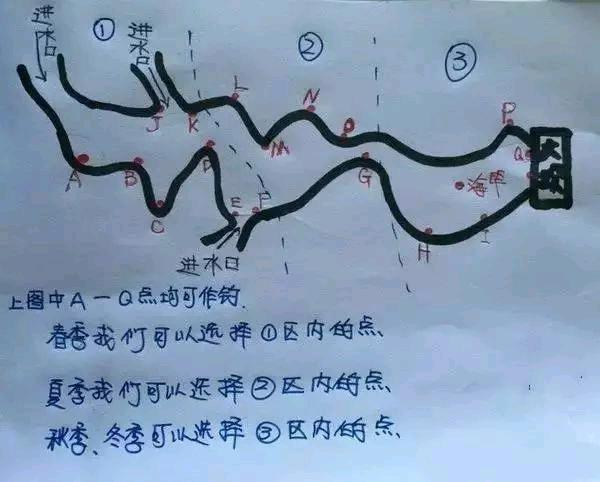 进水口
①
进水口
②
③
L
N
P
J
K
M
O
Q
大坝
A
B
D
G
海竿
C
E
F
H
I
进水口
上图中A一Q点均可作钓.
春季我们可以选择①区内的点、
夏季我们可以选择②区内的点、
秋季、冬季可以选择③区内的点、